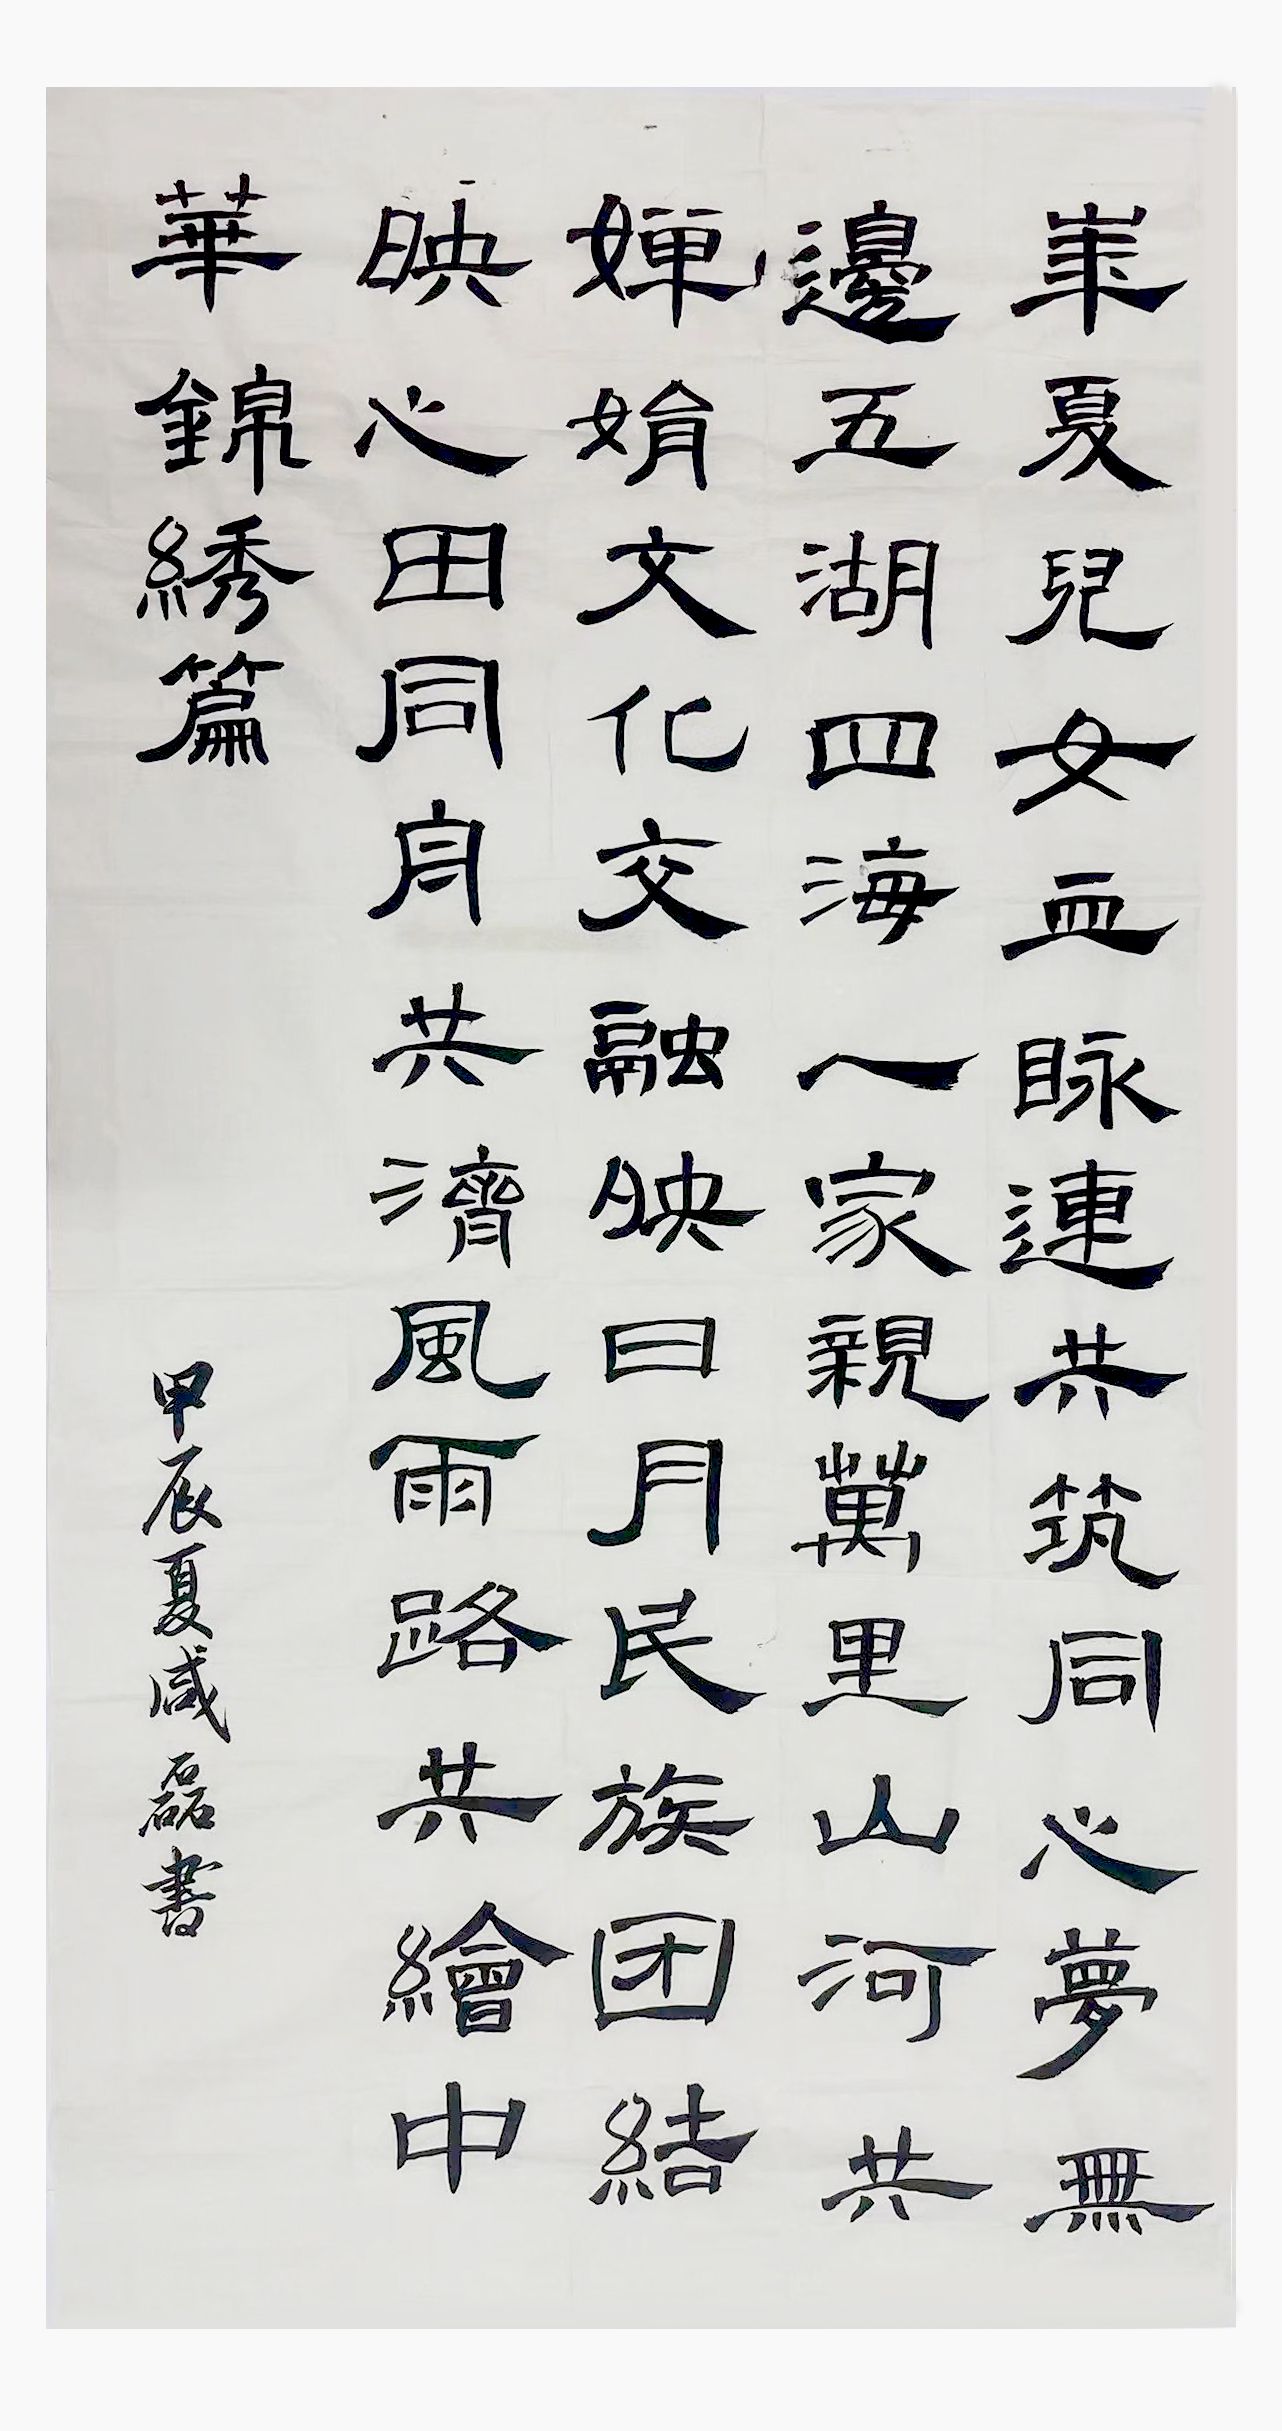 崋夏兒女血脉連共筑同心夢無
邊五湖四海一家親萬里山河共
嬋娟文化交融映日月民族团結
映心田同舟共濟風雨路共繪中
華錦綉篇
甲辰夏咸磊書